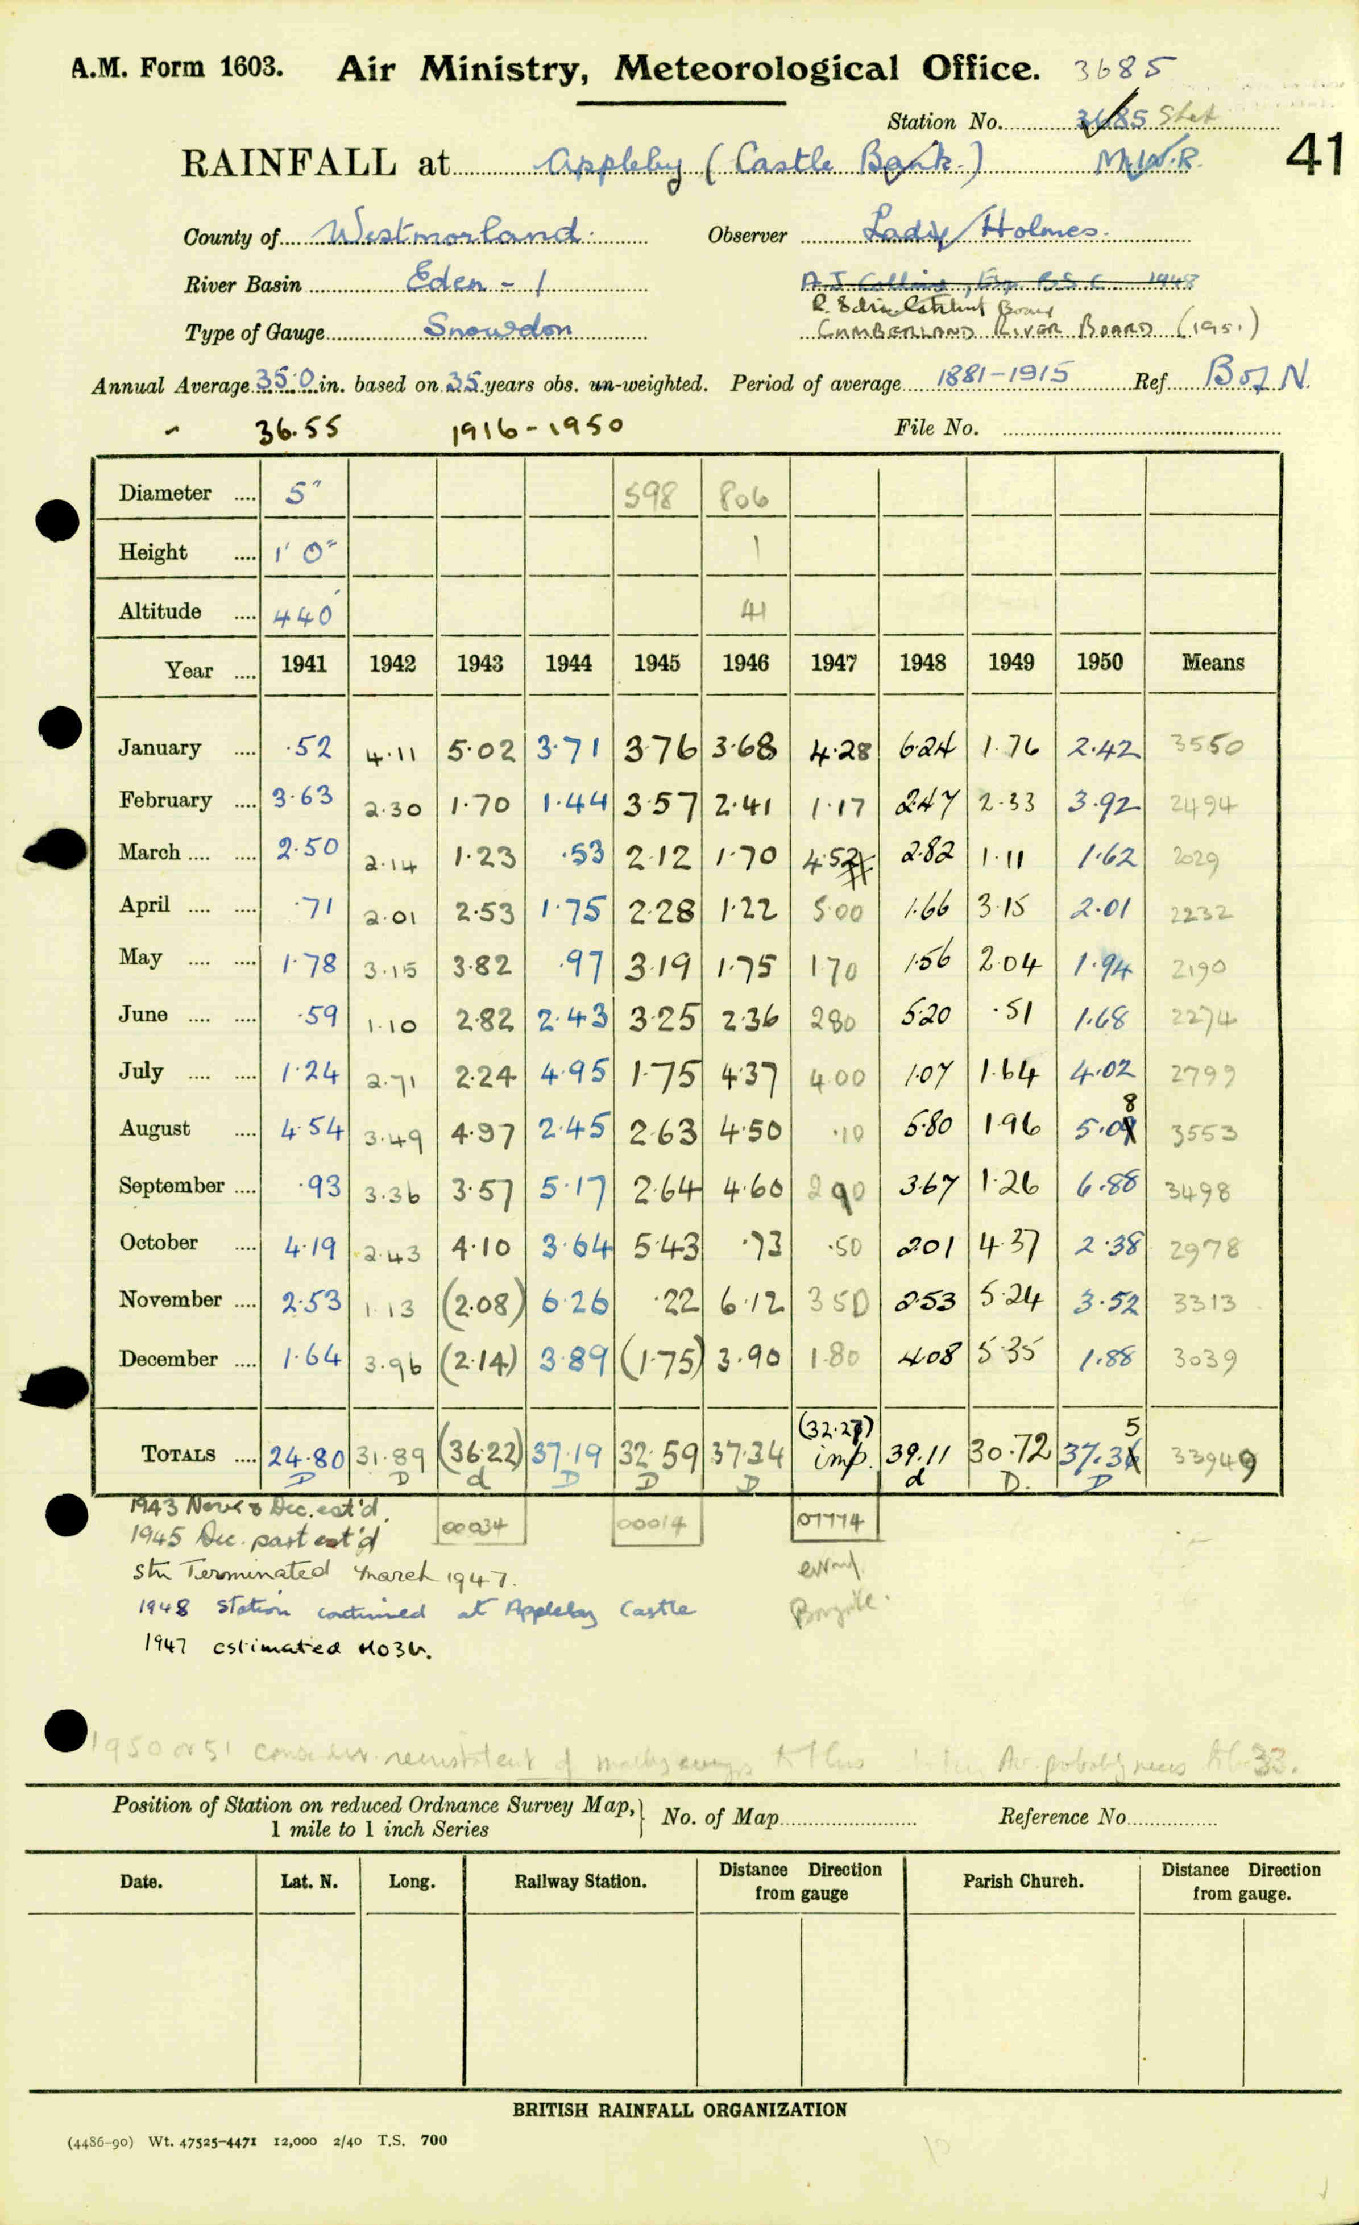 A.M. Form 1603. Air Ministry, Meteorological Office. 3685
Station No. 3685 Stet
RAINFALL at Appleby (Castle Bank.) M.W.R. 41
County of Westmorland. Observer Lady Holmes.
River Basin Eden - 1 A J Collins, Esq. B.Sc. 1948
R. Catchment Board
Type of Gauge Snowdon CUMBERLAND RIVER BOARD (1951)
Annual Average 35.0 in. based on 35 years obs. un-weighted. Period of average 1881-1915 Ref. B of N.
36.55 1916-1950 File No.
Diameter .... 5" 598 806
Height .... 1' 0" 1
Altitude .... 440' 41
Year .... 1941 1942 1943 1944 1945 1946 1947 1948 1949 1950 Means
January .... .52 4.11 5.02 3.71 3.76 3.68 4.28 6.24 1.76 2.42 3550
February .... 3.63 2.30 1.70 1.44 3.57 2.41 1.17 2.47 2.33 3.92 2494
March .... .... 2.50 2.14 1.23 .53 2.12 1.70 4.52 2.82 1.11 1.62 2029
April .... .... .71 2.01 2.53 1.75 2.28 1.22 5.00 1.66 3.15 2.01 2232
May .... .... 1.78 3.15 3.82 .97 3.19 1.75 1 70 1.56 2.04 1.94 2190
June .... .... .59 1.10 2.82 2.43 3.25 2.36 2 80 5.20 .51 1.68 2274
July .... .... 1.24 2.71 2.24 4.95 1.75 4.37 4.00 1.07 1.64 4.02 2799
8
August .... 4.54 3.49 4.97 2.45 2.63 4.50 .10 5.80 1.96 5.09 3553
September .... .93 3.36 3.57 5.17 2.64 4.60 2 90 3.67 1.26 6.88 3498
October .... 4.19 2.43 4.10 3.64 5.43 .73 .50 2.01 4.37 2.38 2978
November .... 2.53 1.13 (2.08) 6.26 .22 6.12 3 50 2.53 5.24 3.52 3313
December .... 1.64 3.96 (2.14) 3.89 (1.75) 3.90 1.80 4.08 5.35 1.88 3039
(32.27) 5
TOTALS .... 24.80 31.89 (36.22) 37.19 32.59 37.34 imp. 39.11 30.72 37.36 33949
D D d D D D d D. D
1943 Nov & Dec. est'd. 00034 00014 07774
1945 Dec. part est'd
Stn Terminated March 1947.
1948 Station continued at Appleby Castle
1947 estimated
1950 or 51 33.
Position of Station on reduced Ordnance Survey Map, 1 mile to 1 inch Series } No. of Map Reference No
Date. Lat. N. Long. Railway Station. Distance from gauge Direction Parish Church. Distance Direction from gauge.
BRITISH RAINFALL ORGANIZATION
(4486-90) Wt. 47525-4471 12,000 2/40 T.S. 700